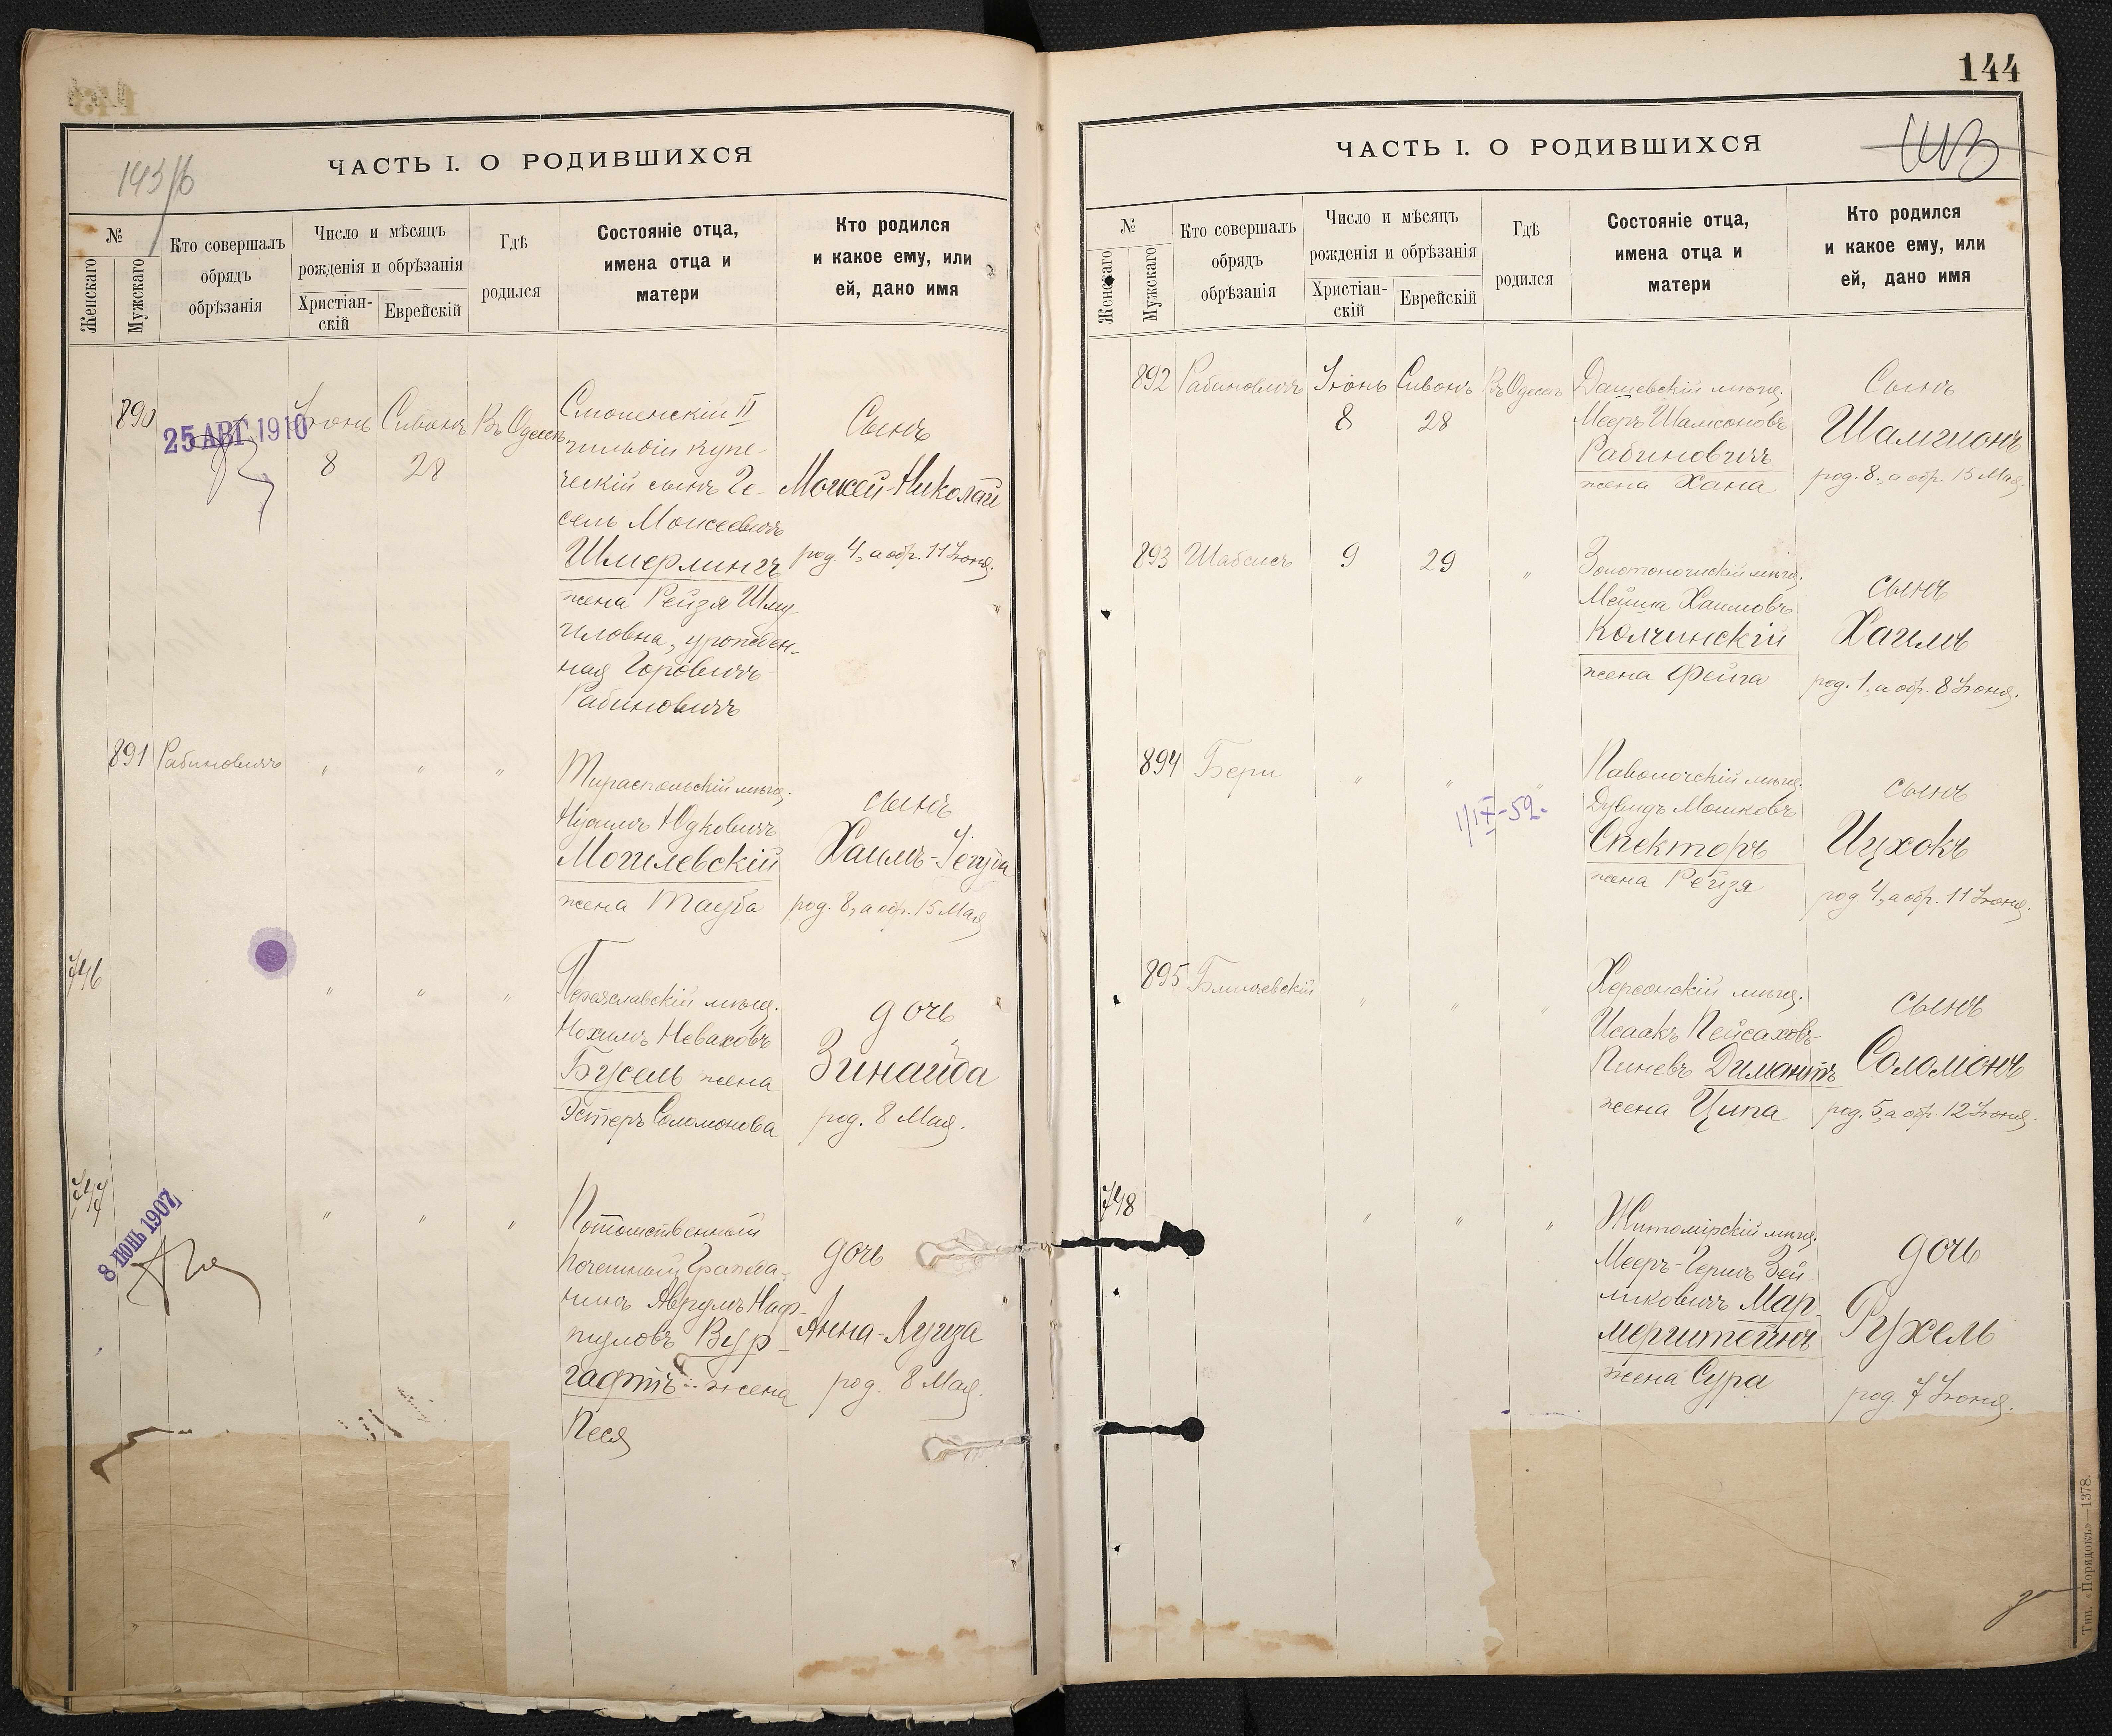 143/б
ЧАСТЬ I. О РОДИВШИХСЯ
№
Женскаго
Мужскаго
Кто совершалъ
обрядъ
обрѣзанія
Число и мѣсяцъ
рожденія и обрѣзанія
Христіан-
скій
Еврейскій
Гдѣ
родился
Состояніе отца,
имена отца и
матери
Кто родился
и какое ему, или
ей, дано имя
890
25 АВГ. 1910
Іюнь
8
Сивонъ
28
Въ Одессѣ
Смоленскій II
гильдіи купе-
ческій сынъ Іо-
сель Моисеевичъ
Шмерлингъ
жена Рейзя Шму-
иловна, урожден-
ная Горовичъ-
Рабиновичъ
Сынъ
Моисей-Николай
род. 4, а обр. 11 Іюня.
891
Рабиновичъ
"
"
"
Тираспольскій мѣщ.
Юдковичъ
Могилевскій
жена Тауба
сынъ
Хаимъ-Іегуда
род. 8, а обр. 15 Мая
746
"
"
"
Переяславскій мѣщ.
Нохимъ Неваховъ
Бусель жена
Эстеръ Соломонова
дочь
Зинаида
род. 8 Мая.
747
8 ІЮНЬ 1907
"
"
"
Потомственный
Почетный Гражда-
нинъ Аврумъ Наф-
туловъ Вур-
гафтъ жена
Песя
дочь
Анна-Луиза
род. 8 Мая.
144
ЧАСТЬ I. О РОДИВШИХСЯ
№
Женскаго
Мужскаго
Кто совершалъ
обрядъ
обрѣзанія
Число и мѣсяцъ
рожденія и обрѣзанія
Христіан-
скій
Еврейскій
Гдѣ
родился
Состояніе отца,
имена отца и
матери
Кто родился
и какое ему, или
ей, дано имя
892
Рабиновичъ
Іюнь
8
Сивонъ
28
Въ Одессѣ
Дашевскій мѣщ.
Мееръ Шамсоновъ
Рабиновичъ
жена Хана
Сынъ
Шамшонъ
род. 8, а обр. 15 Мая.
893
Шабсисъ
9
29
"
Золотоношскій мѣщ.
Мейша Хаимовъ
Колчинскій
жена Фейга
сынъ
Хаимъ
род. 1, а обр. 8 Іюня.
894
Бери
"
"
"
1/IX-52.
Паволочскій мѣщ.
Дувидъ Мошковъ
Спекторъ
жена Рейзя
сынъ
Ицхокъ
род 4, а обр. 11 Іюня.
895
"
"
"
Херсонскій мѣщ.
Исаакъ Пейсахов-
Пиневъ Димантъ
жена Ципа
сынъ
Соломонъ
род. 5, а обр. 12 Іюня.
748
"
"
"
Житомірскій мѣщ.
Мееръ-Гершъ Зей-
ликовичъ Мар-
мерштейнъ
жена Сура
дочь
Рухель
род 7 Іюня.
Тип. «Порядокъ»—1378.